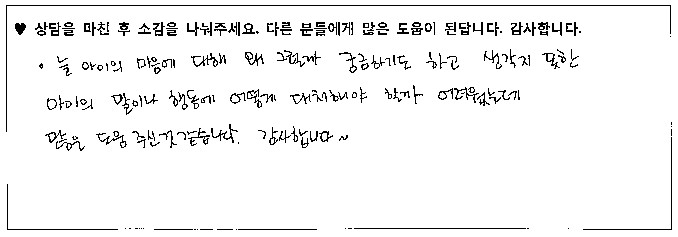 ♥ 상담을 마친 후 소감을 나눠주세요. 다른 분들에게 많은 도움이 된답니다. 감사합니다.
• 늘 아이의 마음에 대해 왜 그럴까 궁금하기도 하고 생각지 못한
아이의 말이나 행동에 어떻게 대처해야 할까 어려웠는데
많은 도움 주신것 같습니다. 감사합니다~